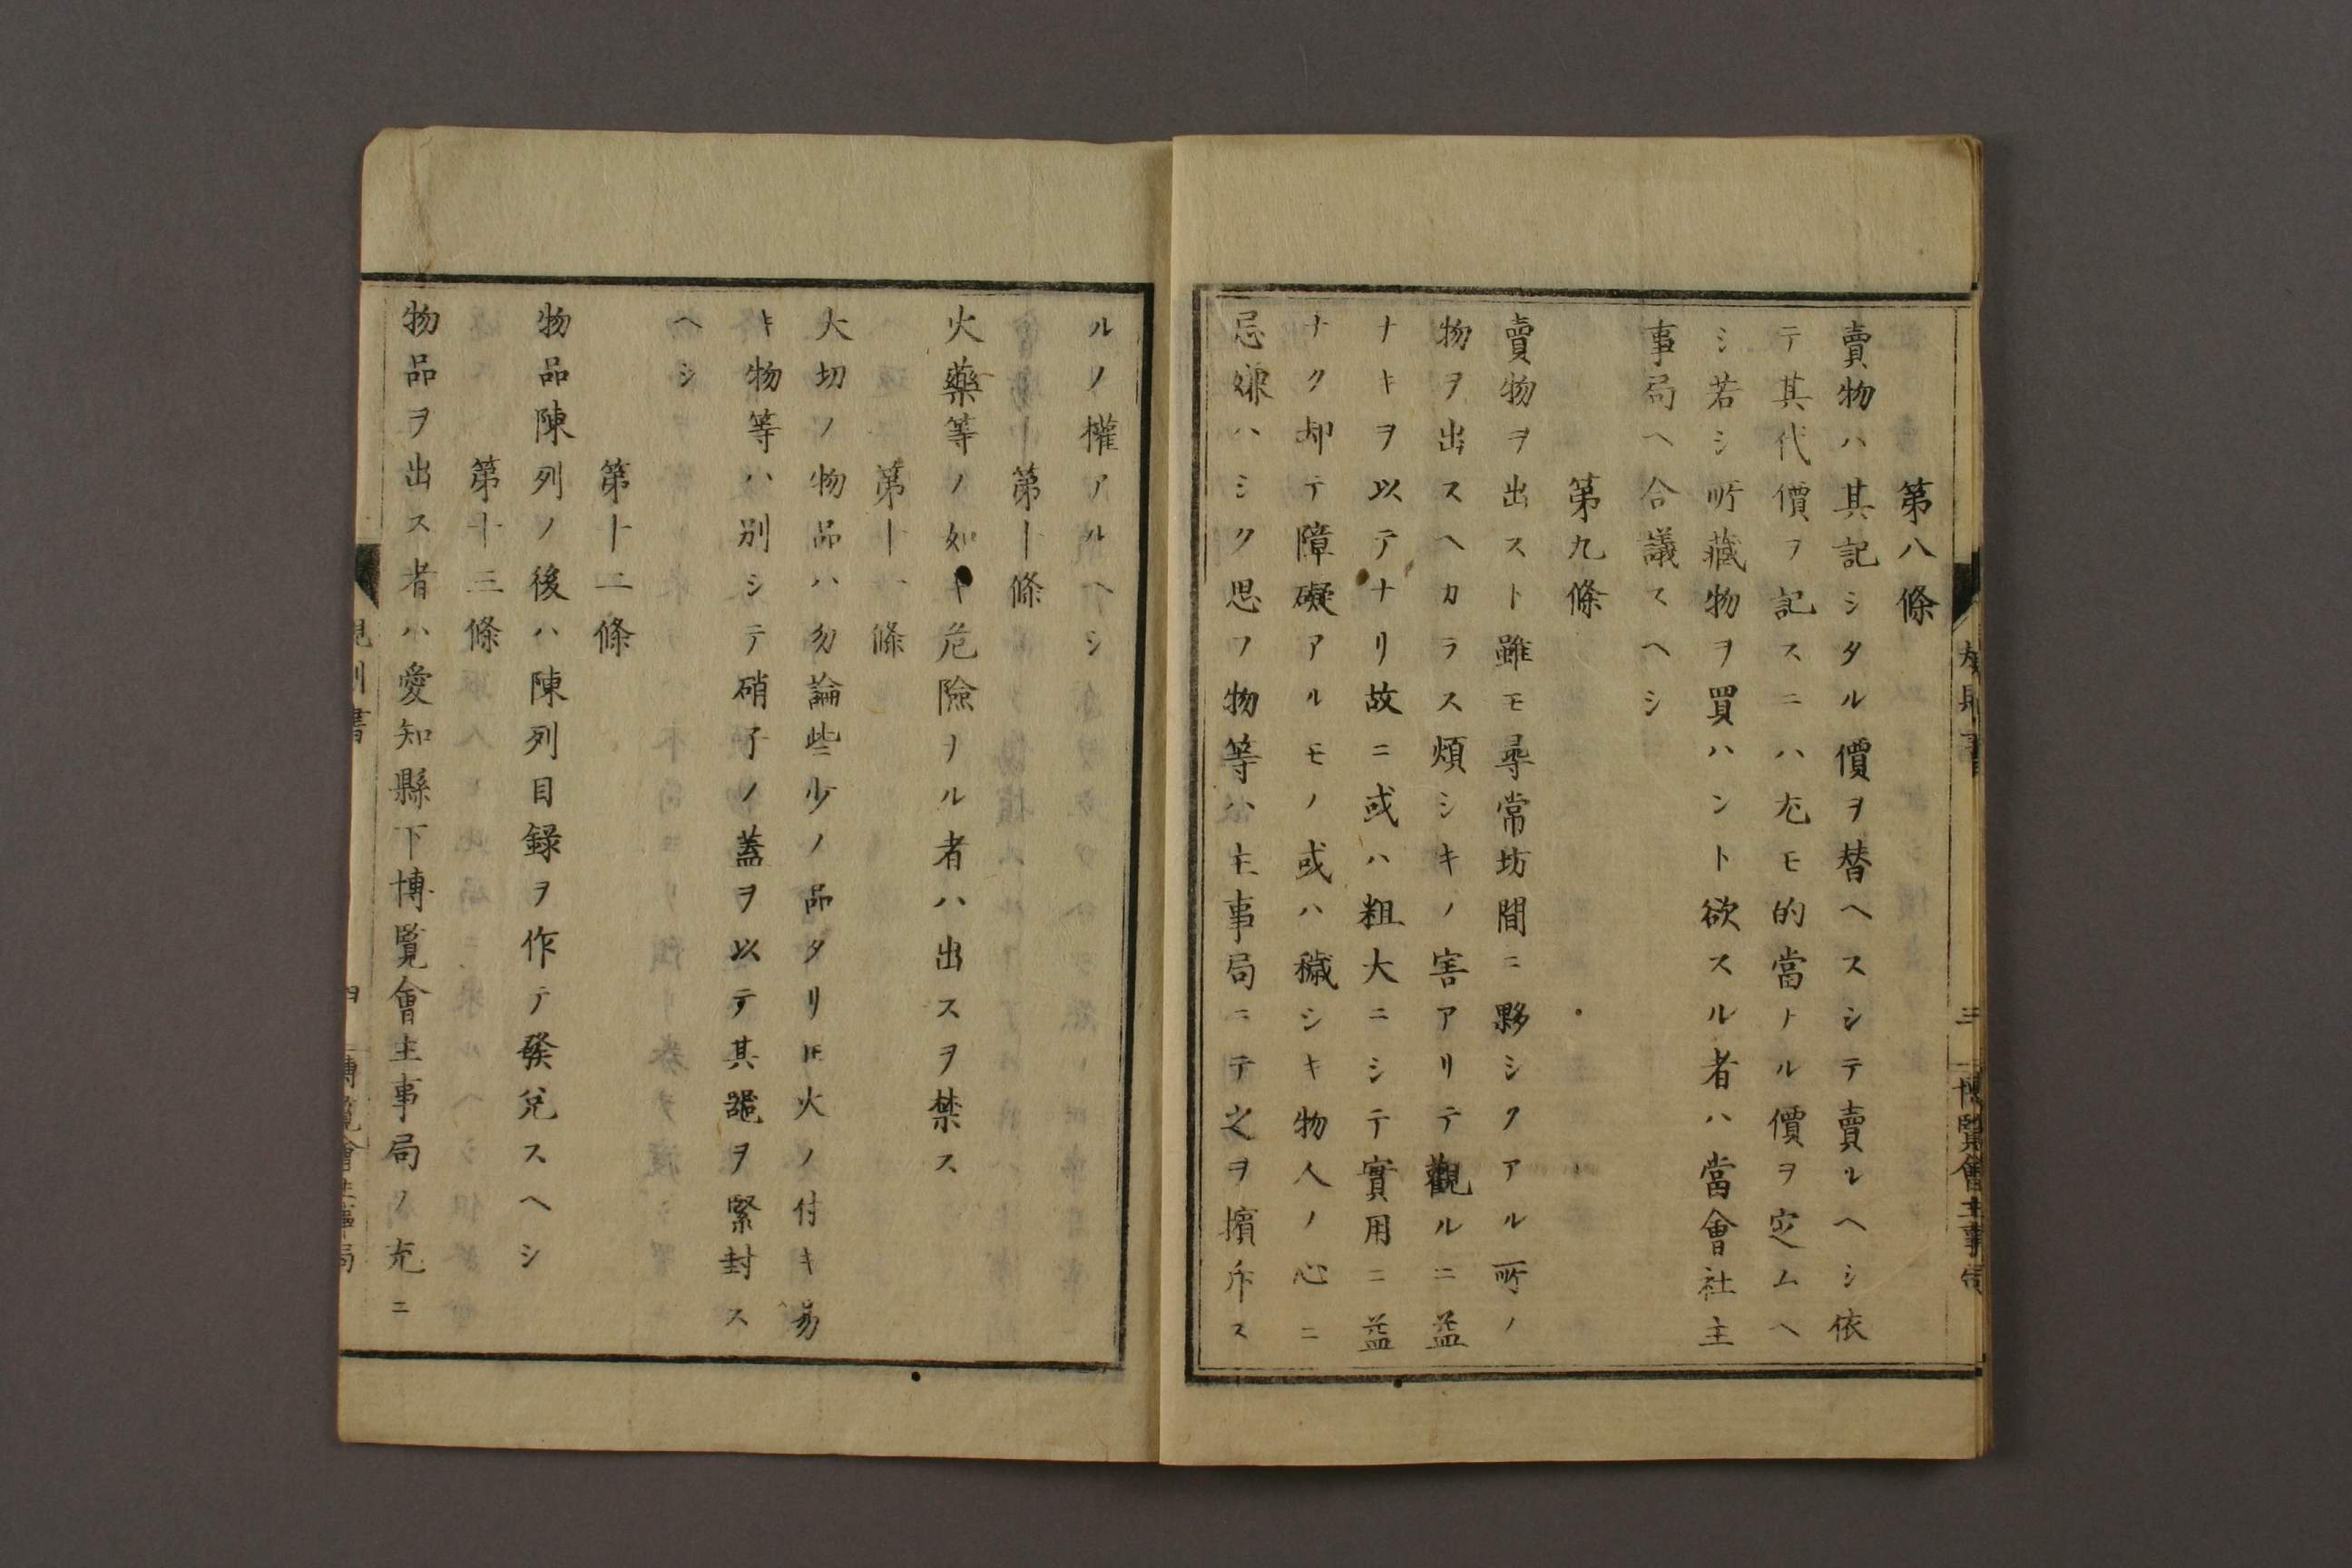 第八條
賣物ハ其記シタル價ヲ替ヘスシテ賣ルヘシ依
テ其代價ヲ記スニハ尤モ的當ナル價ヲ定ムヘ
シ若シ所藏物ヲ買ハント欲スル者ハ當會社主
事局ヘ合議スヘシ
第九條
賣物ヲ出スト雖モ尋常坊間ニ夥シクアル所ノ
物ヲ出スヘカラス煩シキノ害アリテ觀ルニ益
ナキヲ以テナリ故ニ或ハ粗大ニシテ實用ニ益
ナク却テ障礙アルモノ或ハ穢シキ物人ノ心ニ
忌嫌ハシク思フ物等ハ主事局ニテ之ヲ擯斥ス
規則書
三
博覽會主事局
ルノ權アルヘシ
第十條
火藥等ノ如キ危險ナル者ハ出スヲ禁ス
第十一條
大切ノ物品ハ勿論些少ノ品タリ𪜈火ノ付キ易
キ物等ハ別シテ硝子ノ蓋ヲ以テ其器ヲ緊封ス
ヘシ
第十二條
物品陳列ノ後ハ陳列目録ヲ作テ發兌スヘシ
第十三條
物品ヲ出ス者ハ愛知縣下博覽會主事局ノ充ニ
規則書
四
博覽會主事局